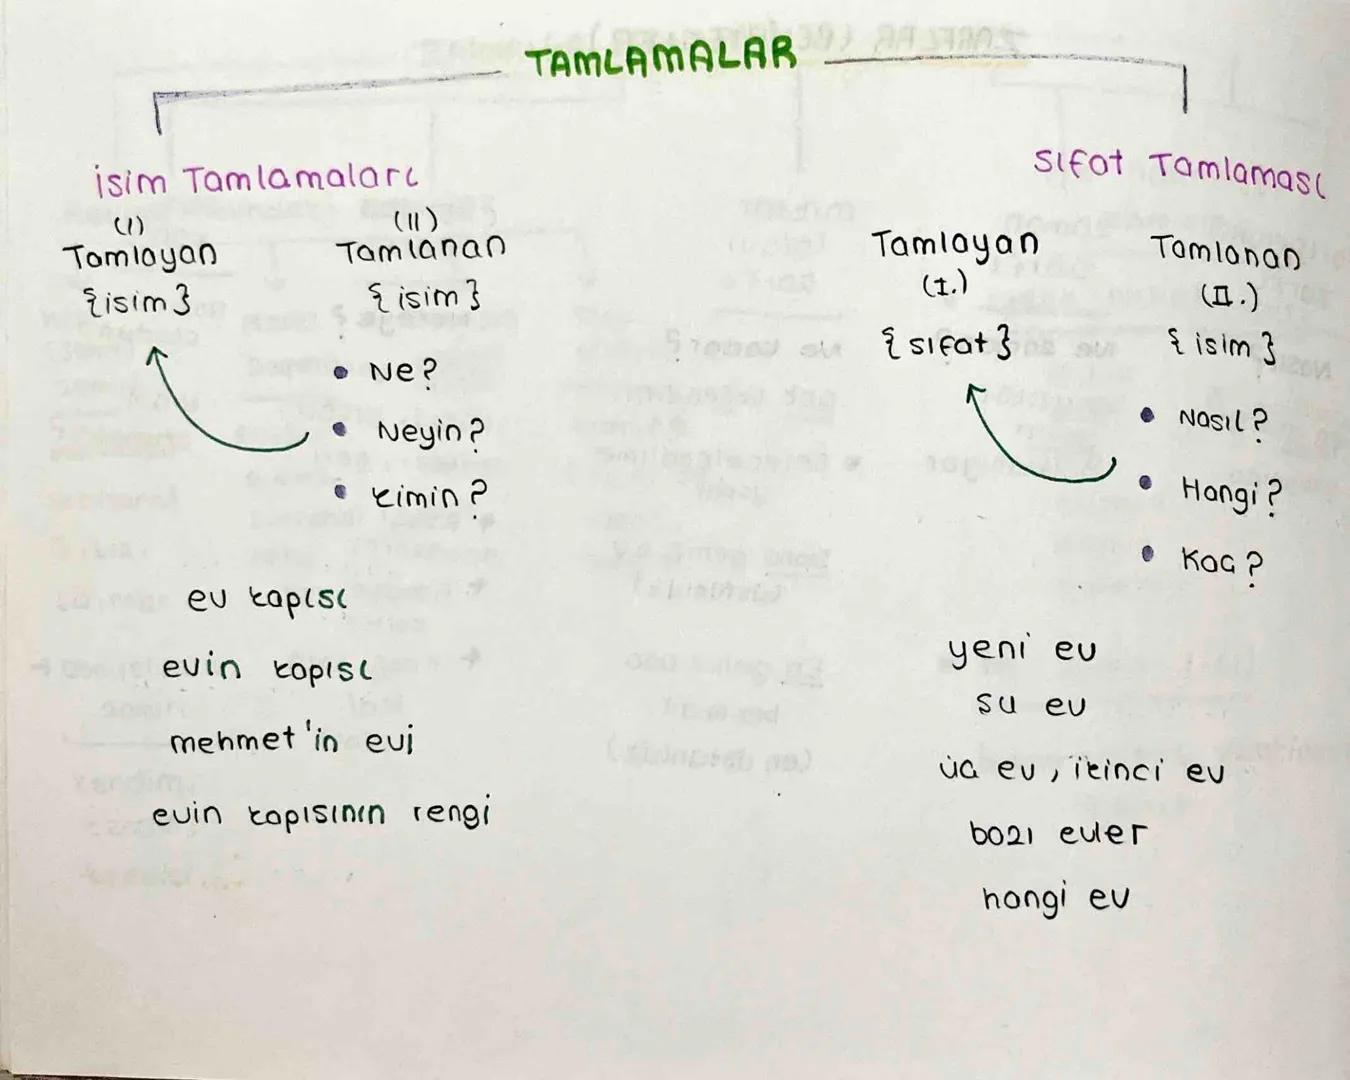 TAMLAMALAR
isim Tamlamaları
(I) (II)
Tamlayan Tamlanan
{isim} {isim}
• Ne?
• Neyin?
• Kimin?
ev kapısı
evin kapısı
mehmet'in evi
evin kapısının rengi
sıfat Tamlaması
Tamlayan Tamlanan
(I.) (II.)
{sıfat} {isim}
• Nasıl?
• Hangi?
• Kaç?
yeni ev
şu ev
üç ev, ikinci ev
bazı evler
hangi ev